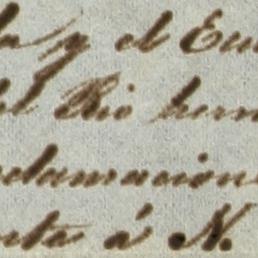 la y el Eu
el Rio herm
clamacion
rta á N.